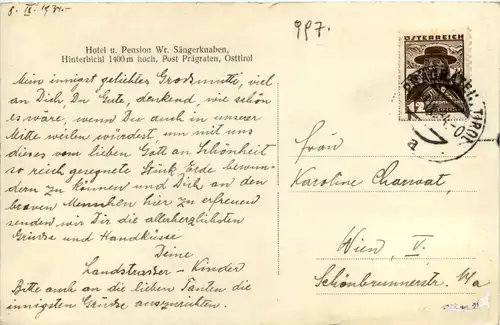 8. IX. 1934.-
997.
Hotel u. Pension Wr. Sängerknaben,
Hinterbichl 1400 m hoch, Post Prägraten, Osttirol
Mein innigst geliebtes Grossmutti, viel
an Dich, Du Gute, denkend, wie schön
es wäre, wenn Du auch in unserer
Mitte weilen würdest um mit uns
dieses vom lieben Gott an Schönheit
so reich gesegnete Stück Erde bewun-
dern zu können und Dich an den
braven Menschen hier zu erfreuen
senden wir Dir die allerherzlichsten
Grüsse und Handküsse
Deine
Landstrasser - Kinder
Bitte auch an die lieben Tanten die
innigsten Grüsse auszurichten.
ÖSTERREICH
12
TIROL
Frau
Karoline Charwat,
Wien, V.
Schönbrunnerstr.